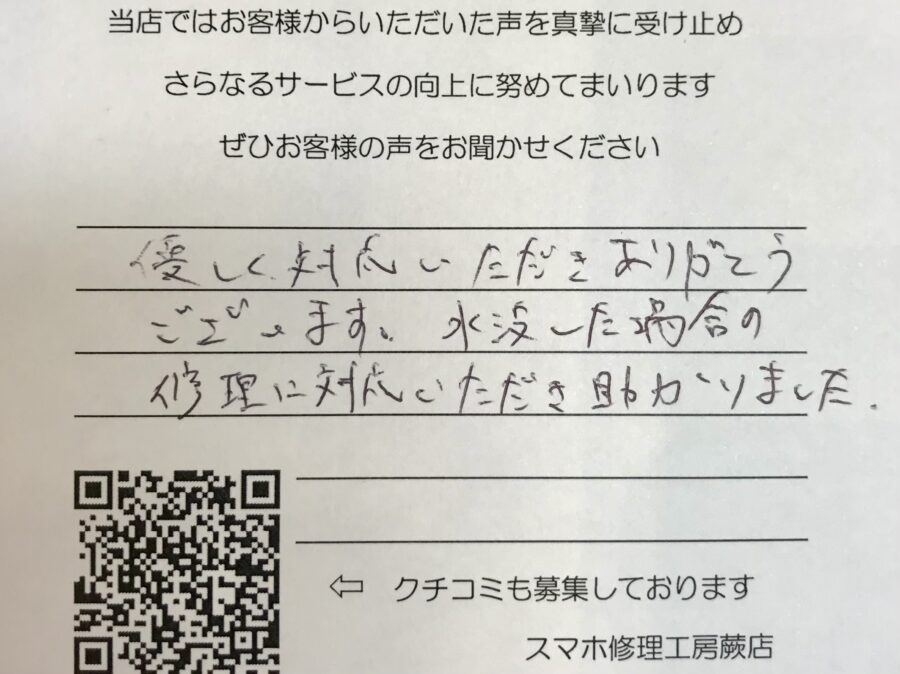 当店ではお客様からいただいた声を真摯に受け止め
さらなるサービスの向上に努めてまいります
ぜひお客様の声をお聞かせください
優しく対応いただきありがとう
ございます。水没した場合の
修理に対応いただき助かりました.
⇦ クチコミも募集しております
スマホ修理工房蕨店